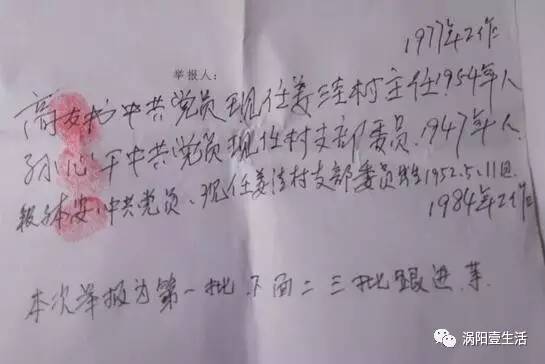 1977年工作
举报人:
高友书中共党员现任姜洼村主任.1954年人
孙心平中共党员现任村支部委员.1947年人.
本安,中共党员、现任姜洼村支部委员 1952.5.11日
1984年工作
本次举报为第一批下面二三批跟进.
涡阳壹生活